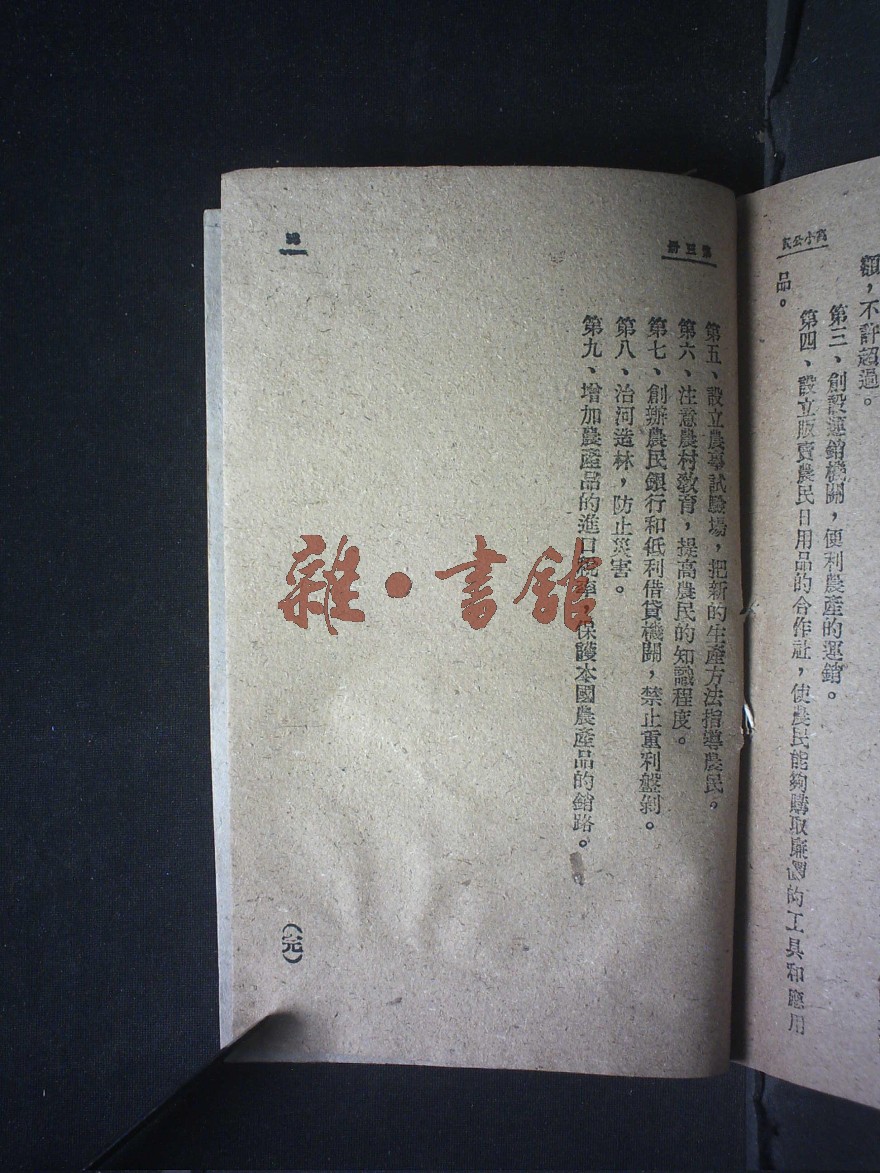 高小公民
額，不許超過。
第三、創設運銷機關，便利農產的運銷。
第四、設立販賣農民日用品的合作社，使農民能夠購取廉價的工具和應用
品。
第三冊
第五、設立農事試驗場，把新的生產方法指導農民。
第六、注意農村教育，提高農民的知識程度。
第七、創辦農民銀行和低利借貸機關，禁止重利盤剝。
第八、治河造林，防止災害。
第九、增加農產品的進口稅率，保護本國農產品的銷路。
（完）
雜·書館